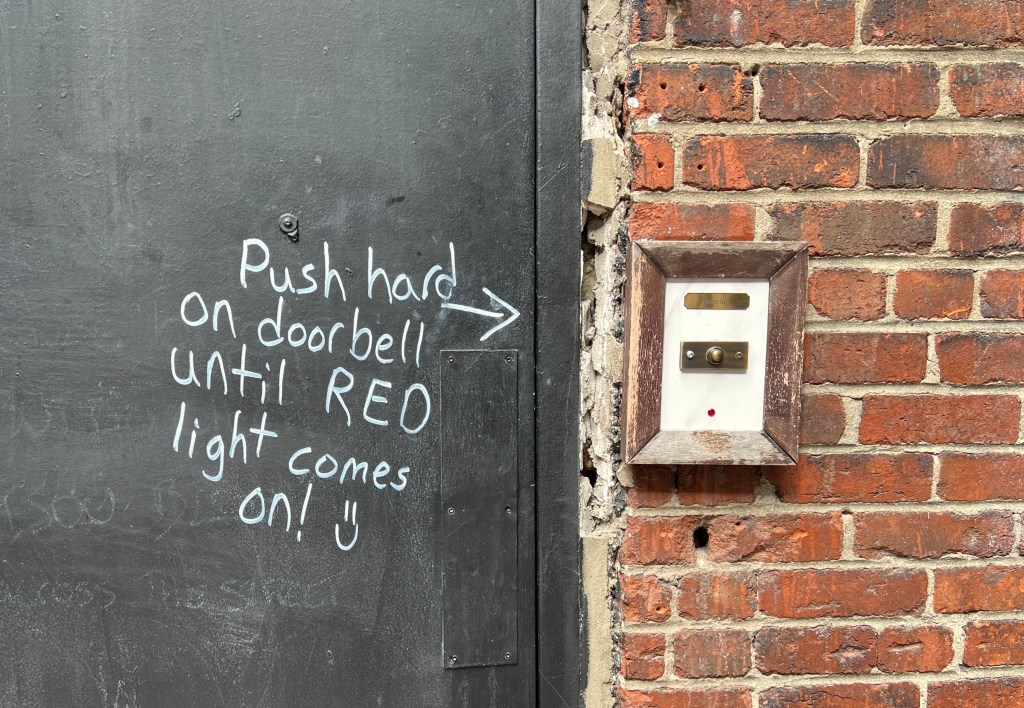 Push hard
on doorbell
until RED
light comes
on!